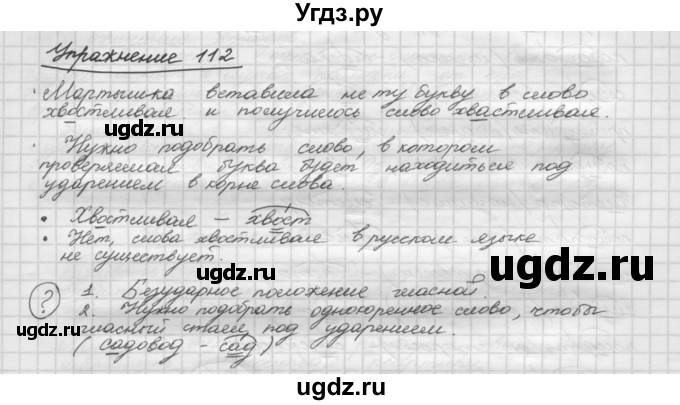 Угдз.ру
Упражнение 112
· Мартышка вставила не ту букву в слово
хвостливая и получилось слово хвастливая.
ugdz.ru
ugdz.ru
· Нужно подобрать слово, в котором
проверяемая буква будет находиться под
ударением в корне слова.
ugdz.ru
• Хвостливая – хвост
• Нет, слова хвостливая в русском языке
не существует.
ugdz.ru
? 1. Безударное положение гласной.
2. Нужно подобрать однокоренное слово, чтобы
гласный стал под ударением.
ugdz.ru
ugdz.ru
(садовод - сад)
ugdz.ru